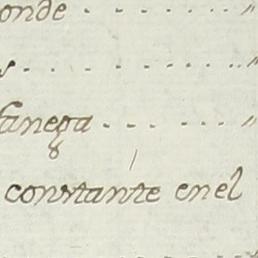 onde . . . . . . . "
s . . . . . . . . "
fanega . . . . "
constante en el